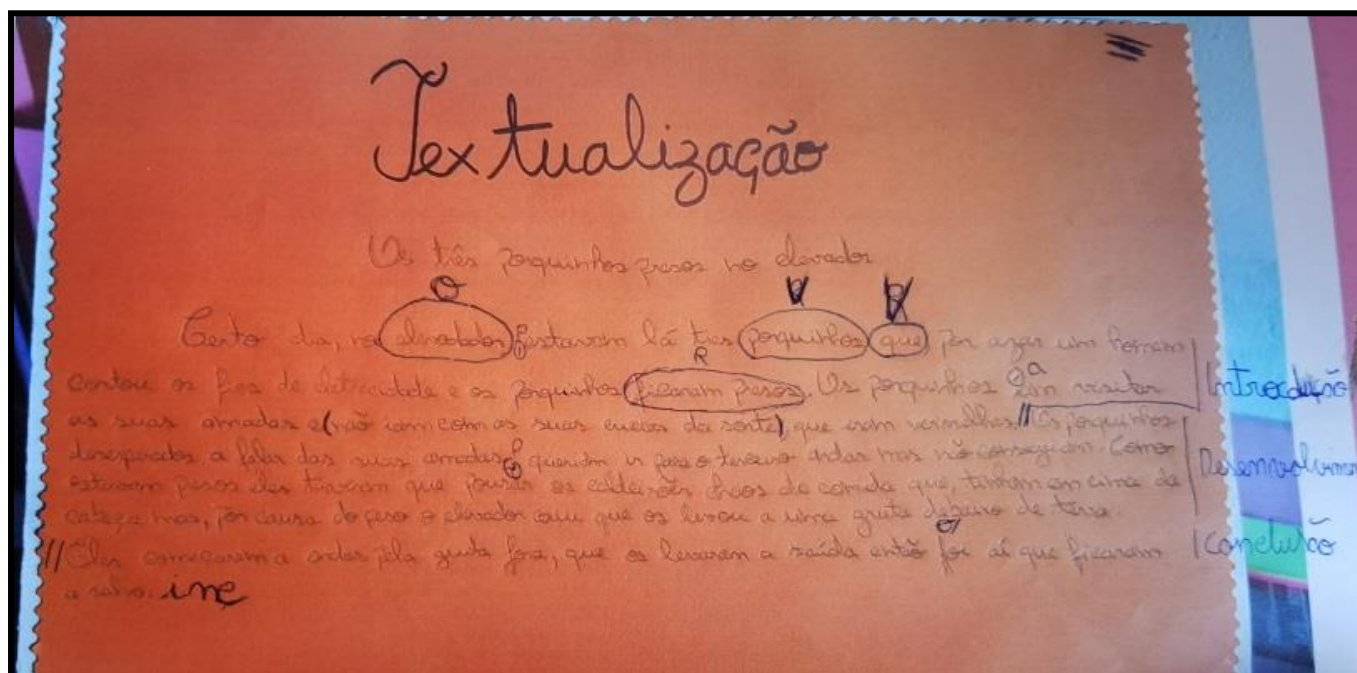 Textualização
Os três porquinhos presos no elevador
O V
Certo dia, no elevador estavam lá três porquinhos que por azar um homem
R
contou os fios de eletrecidade e os porquinhos ficaram presos. Os porquinhos visitar Introdução
as suas amadas e (não iam com as suas cuecas da sorte), que eram vermelhas. // Os porquinhos
desesperados a falar das suas amadas queriam ir para o terceiro andar mas não conseguiam. Como Desenvolvimen
estavam presos eles tiveram que pousar os caldeirões cheos de comida que, tinham em cima da
cabeça mas, por causa do peso o elevador caiu que os levou a uma gruta debaixo de terra.
// Eles começaram a andar pela gruta fora, que os levaram a saída então foi aí que ficaram Conclusão
a salvo. ine